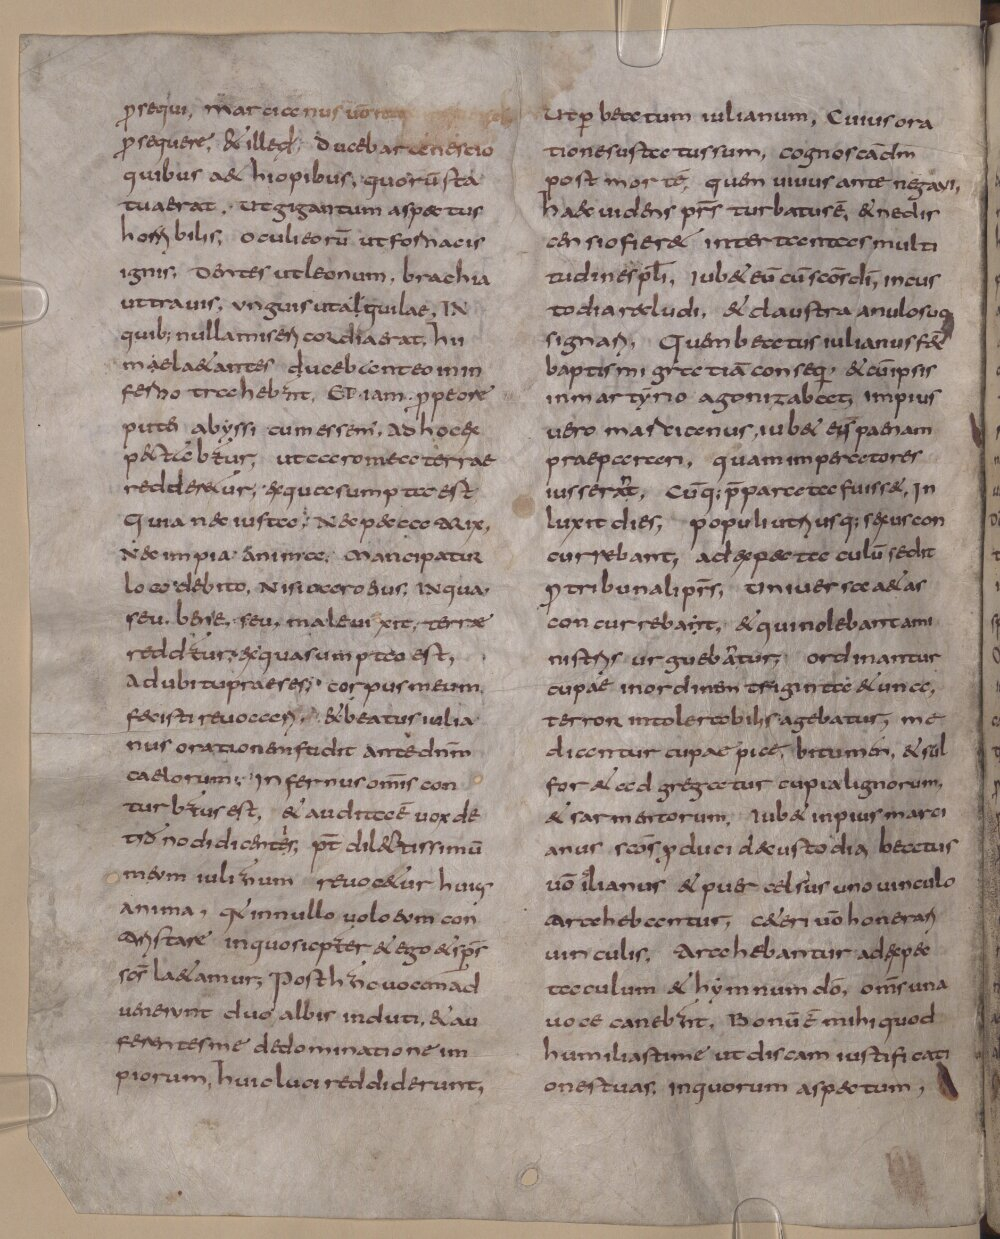 ꝓsequi, marcianus uō
ꝓsequere, & ille dix̄, Ducebar a nescio
quibus aethiopibus, quorū sta
tua erat, ut gigantum aspectus
horribilis, oculi eorū ut fornacis
ignis, Dentes ut leonum, brachia
ut trauis, ungues ut alquilae, IN
quib; nulla misericordia erat, hii
me laetantes ducebant eo in in
ferno trahebant, Et iam prope ore
putei abyssi cum essem, ad hoc ex
pectabatur, ut caro mea terrae
redderetur, ex qua sumpta est
Quia nec iusta, Nec peccatrix,
Nec impia anima, mancipatur
loco debito, Nisi caro eius, IN qua,
seu bene, seu male uixit, terrae
reddatur, ex qua sumpta est,
Ad ubi tu praeses, corpus meum
fecisti reuocari, & beatus iulia
nus orationem fudit ante dn̄m
caelorum, Infernus omīs con
turbatus est, & audita ē uox de
trono dicentes, pt̄ dilectissimū
meum iulianum reuocetur huius
anima, qr̄ in nullo uolo eum con
tristare in quo sic pater & ego & sps̄
sc̄s laetamur, Post hanc uocem ad
uenerunt duo albis induti, & au
ferentes me de dominatione im
piorum, huic luci reddiderunt,
Ut per beatum iulianum, Cuius ora
tione sustatus sum, cognoscā dm̄
post mortē, quem uiuus ante negaui,
haec uidens prs̄ turbatus ē, & ne dis
censio fieret inter tantas multi
tudines ppli, Iubet eū cū scōs di, in cus
todia recludi, & claustra anulo suo
signari, Quem beatus iulianus fec̄
baptismi gratiā consequi, & cū ipsis
in martyrio agonizabat, impius
uero marcianus, iubet eis paenam
praeparari, quam imperatores
iusserant, Cūq; p̄parata fuisset, In
luxit dies, populi utriusq; sexus con
currebant, ad expectaculū sedit
ꝓ tribunali prs̄, Uniuersa aetas
concurrebant, & qui nolebant a mi
nistris urguebantur, ordinantur
cupae in ordinem triginta & una,
terror intolerabilis agebatur, me
dicantur cupae pice, bitumen, & sul
for & adgregatur cupia lignorum,
& sarmentorum, Iubet inpius marci
anus scōs ꝓduci de custodia beatus
uō iulianus & puer celsus uno uinculo
atrahebantur, ceteri uō honerari
uinculis, Atrahebantur ad expec
taculum & hymnum dō, omīs una
uoce canebant, Bonū ē mihi quod
humiliasti me ut discam iustificati
ones tuas, in quorum aspectum,